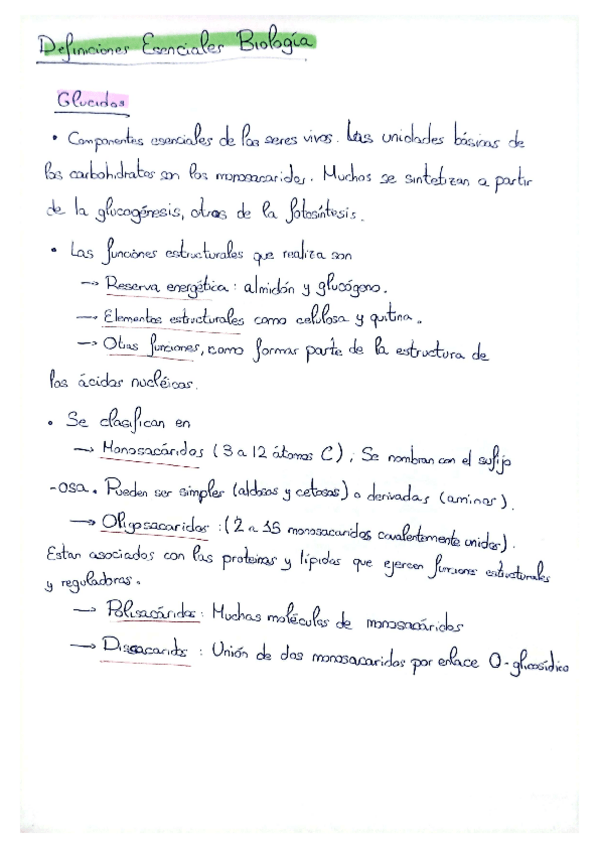 Definiciones Esenciales Biología
Glucidos
• Componentes esenciales de los seres vivos. Las unidades básicas de
los carbohidratos son los monosacaridos. Muchos se sintetizan a partir
de la glucogénesis, otros de la fotosíntesis.
• Las funciones estructurales que realiza son
→ Reserva energética: almidón y glucógeno.
→ Elementos estructurales como celulosa y quitina.
→ Otras funciones, como formar parte de la estructura de
los ácidos nucléicos.
• Se clasifican en
→ Monosacáridos (3 a 12 átomos C); Se nombran con el sufijo
-osa. Pueden ser simples (aldosas y cetosas) o derivadas (aminas).
→ Oligosacaridos: (2 a 15 monosacaridos covalentemente unidos).
Estan asociados con las proteinas y lípidos que ejercen funciones estructurales
y reguladoras.
→ Polisacáridos: Muchas moléculas de monosacáridos
→ Disacaridos: Unión de dos monosacaridos por enlace O-glucosídico